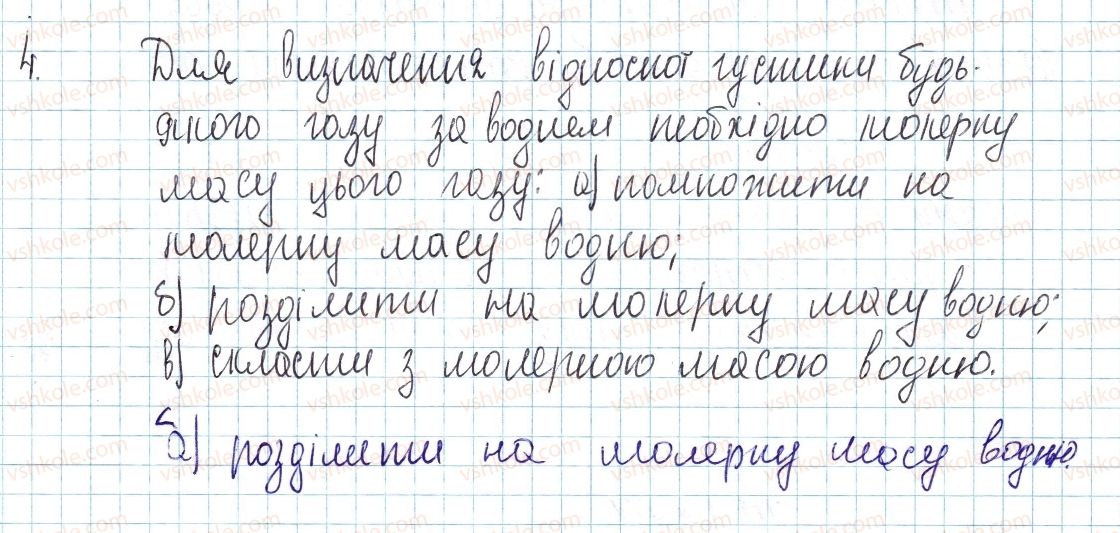 4. Для визначення відносної густини будь-
якого газу за воднем необхідно молерну
масу цього газу: а) помножити на
молерну масу водню;
б) розділити на молерну масу водню;
в) скласти з молерною масою водню.
б) розділити на молерну масу водню.